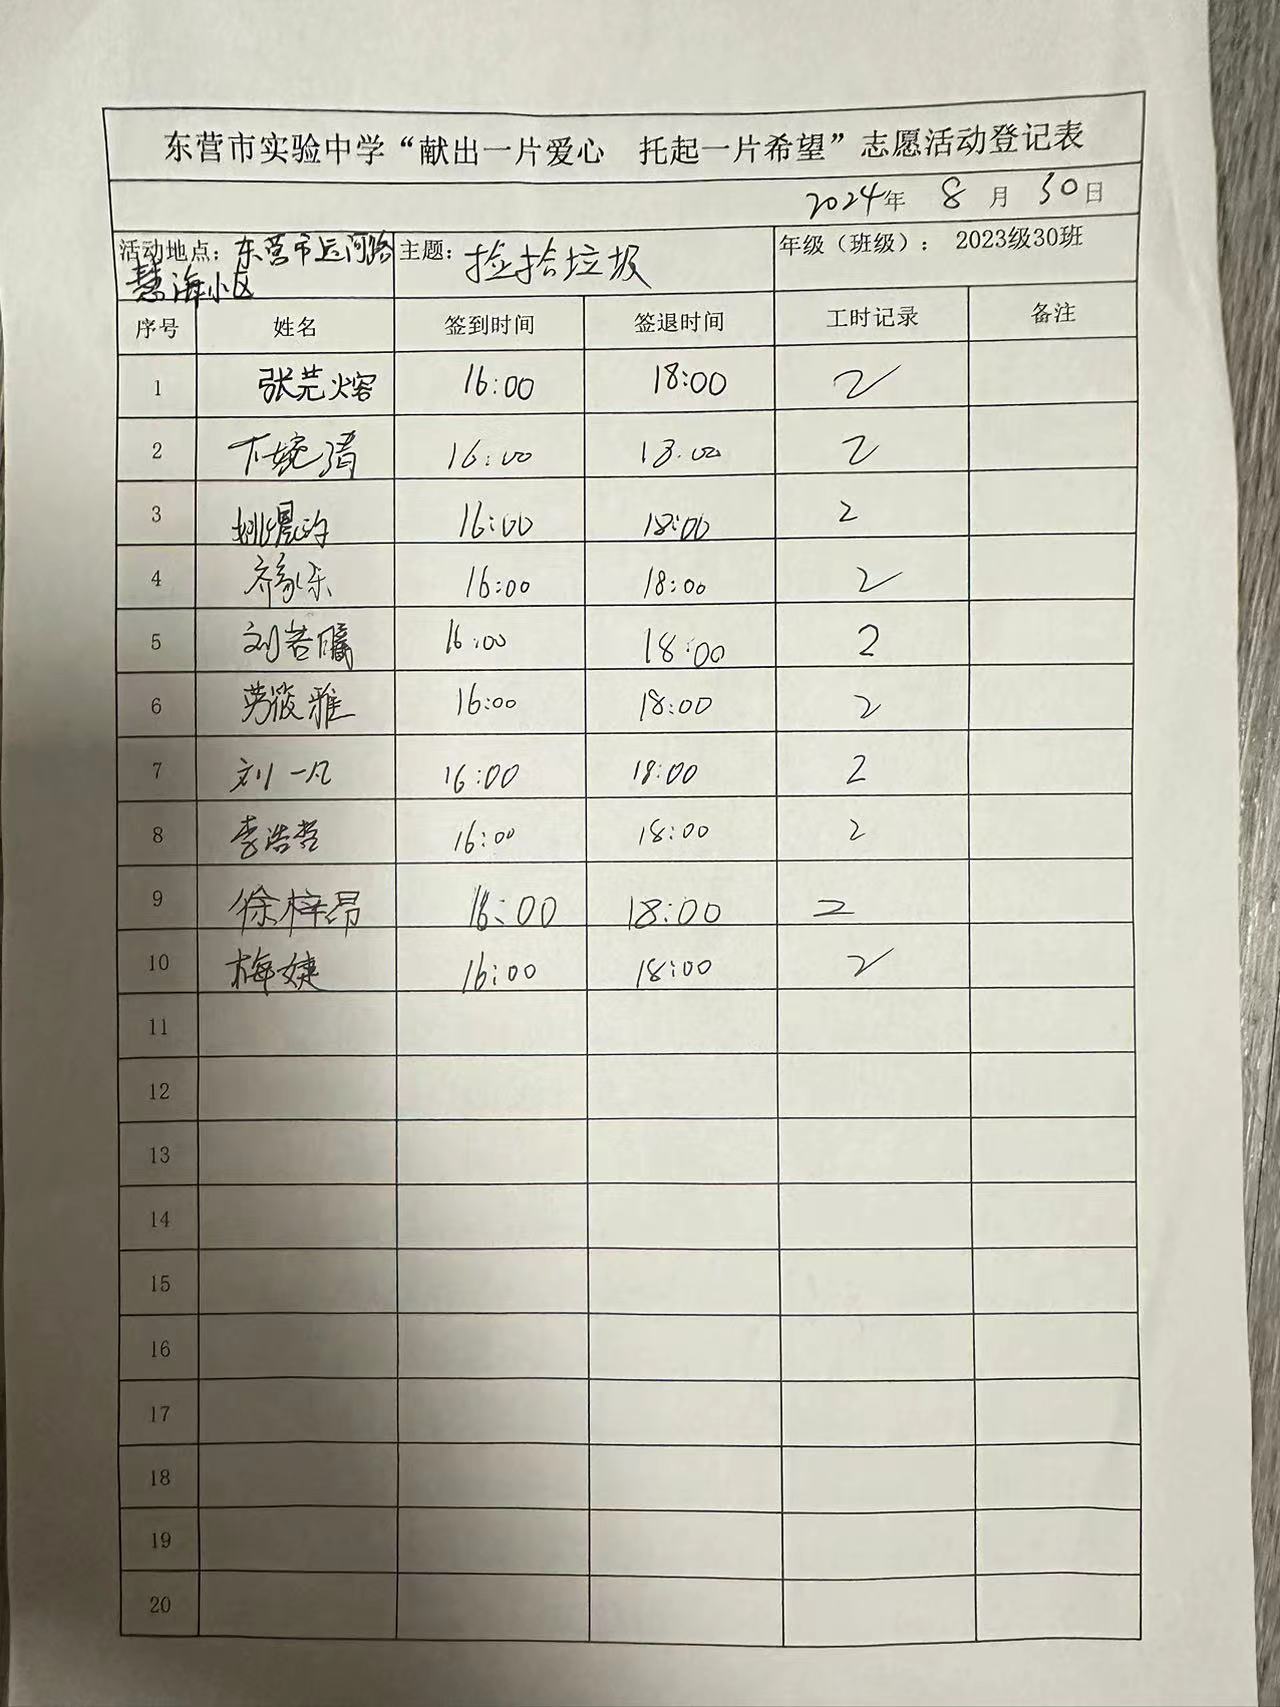 东营市实验中学“献出一片爱心 托起一片希望”志愿活动登记表
2024年 8 月 30日
活动地点：东营市运河路 主题：捡拾垃圾 年级（班级）： 2023级30班
慧海小区
序号 姓名 签到时间 签退时间 工时记录 备注
1 张芫熔 16:00 18:00 2
2 卞婉清 16:00 18:00 2
3 16:00 18:00 2
4 齐家乐 16:00 18:00 2
5 刘若曦 16:00 18:00 2
6 劳筱雅 16:00 18:00 2
7 刘一凡 16:00 18:00 2
8 李浩哲 16:00 18:00 2
9 徐梓昂 16:00 18:00 2
10 梅婕 16:00 18:00 2
11
12
13
14
15
16
17
18
19
20